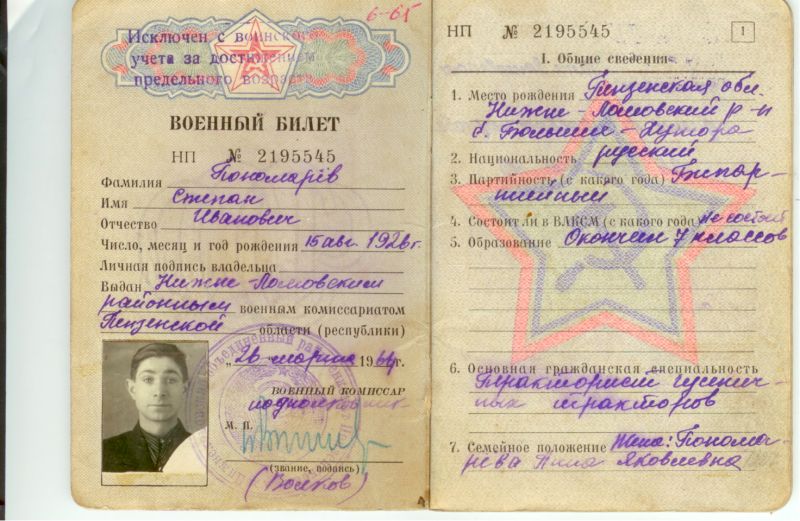 6-65
Исключен с воинского
учета за достижением
предельного возраста
ВОЕННЫЙ БИЛЕТ
НП № 2195545
Фамилия Пономарёв
Имя Степан
Отчество Иванович
Число, месяц и год рождения 15 авг. 1926 г.
Личная подпись владельца
Выдан Нижне-Ломовским
районным военным комиссариатом
Пензенской области (республики)
„26 марта 1964 г.
ВОЕННЫЙ КОМИССАР
подполковник
М. П.
(звание, подпись)
(Волков)
НП № 2195545
1
I. Общие сведения
1. Место рождения Пензенская обл.
Нижне-Ломовский р-н
Хутора
2. Национальность русский
3. Партийность (с какого года) Беспар-
тийный
4. Состоит ли в ВЛКСМ (с какого года) не состоит
5. Образование Окончил 7 классов
6. Основная гражданская специальность
Тракторист гусенич-
ных тракторов
7. Семейное положение Жена: Понома-
рева Яковлевна